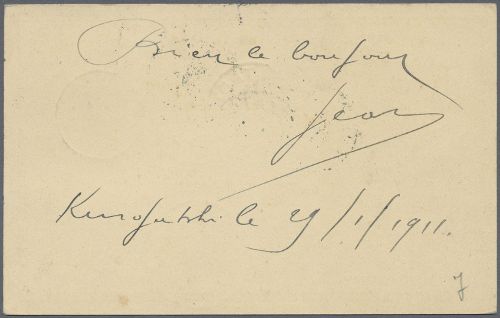 Bien le bonjour
Jean
le 29/1/1911.
7